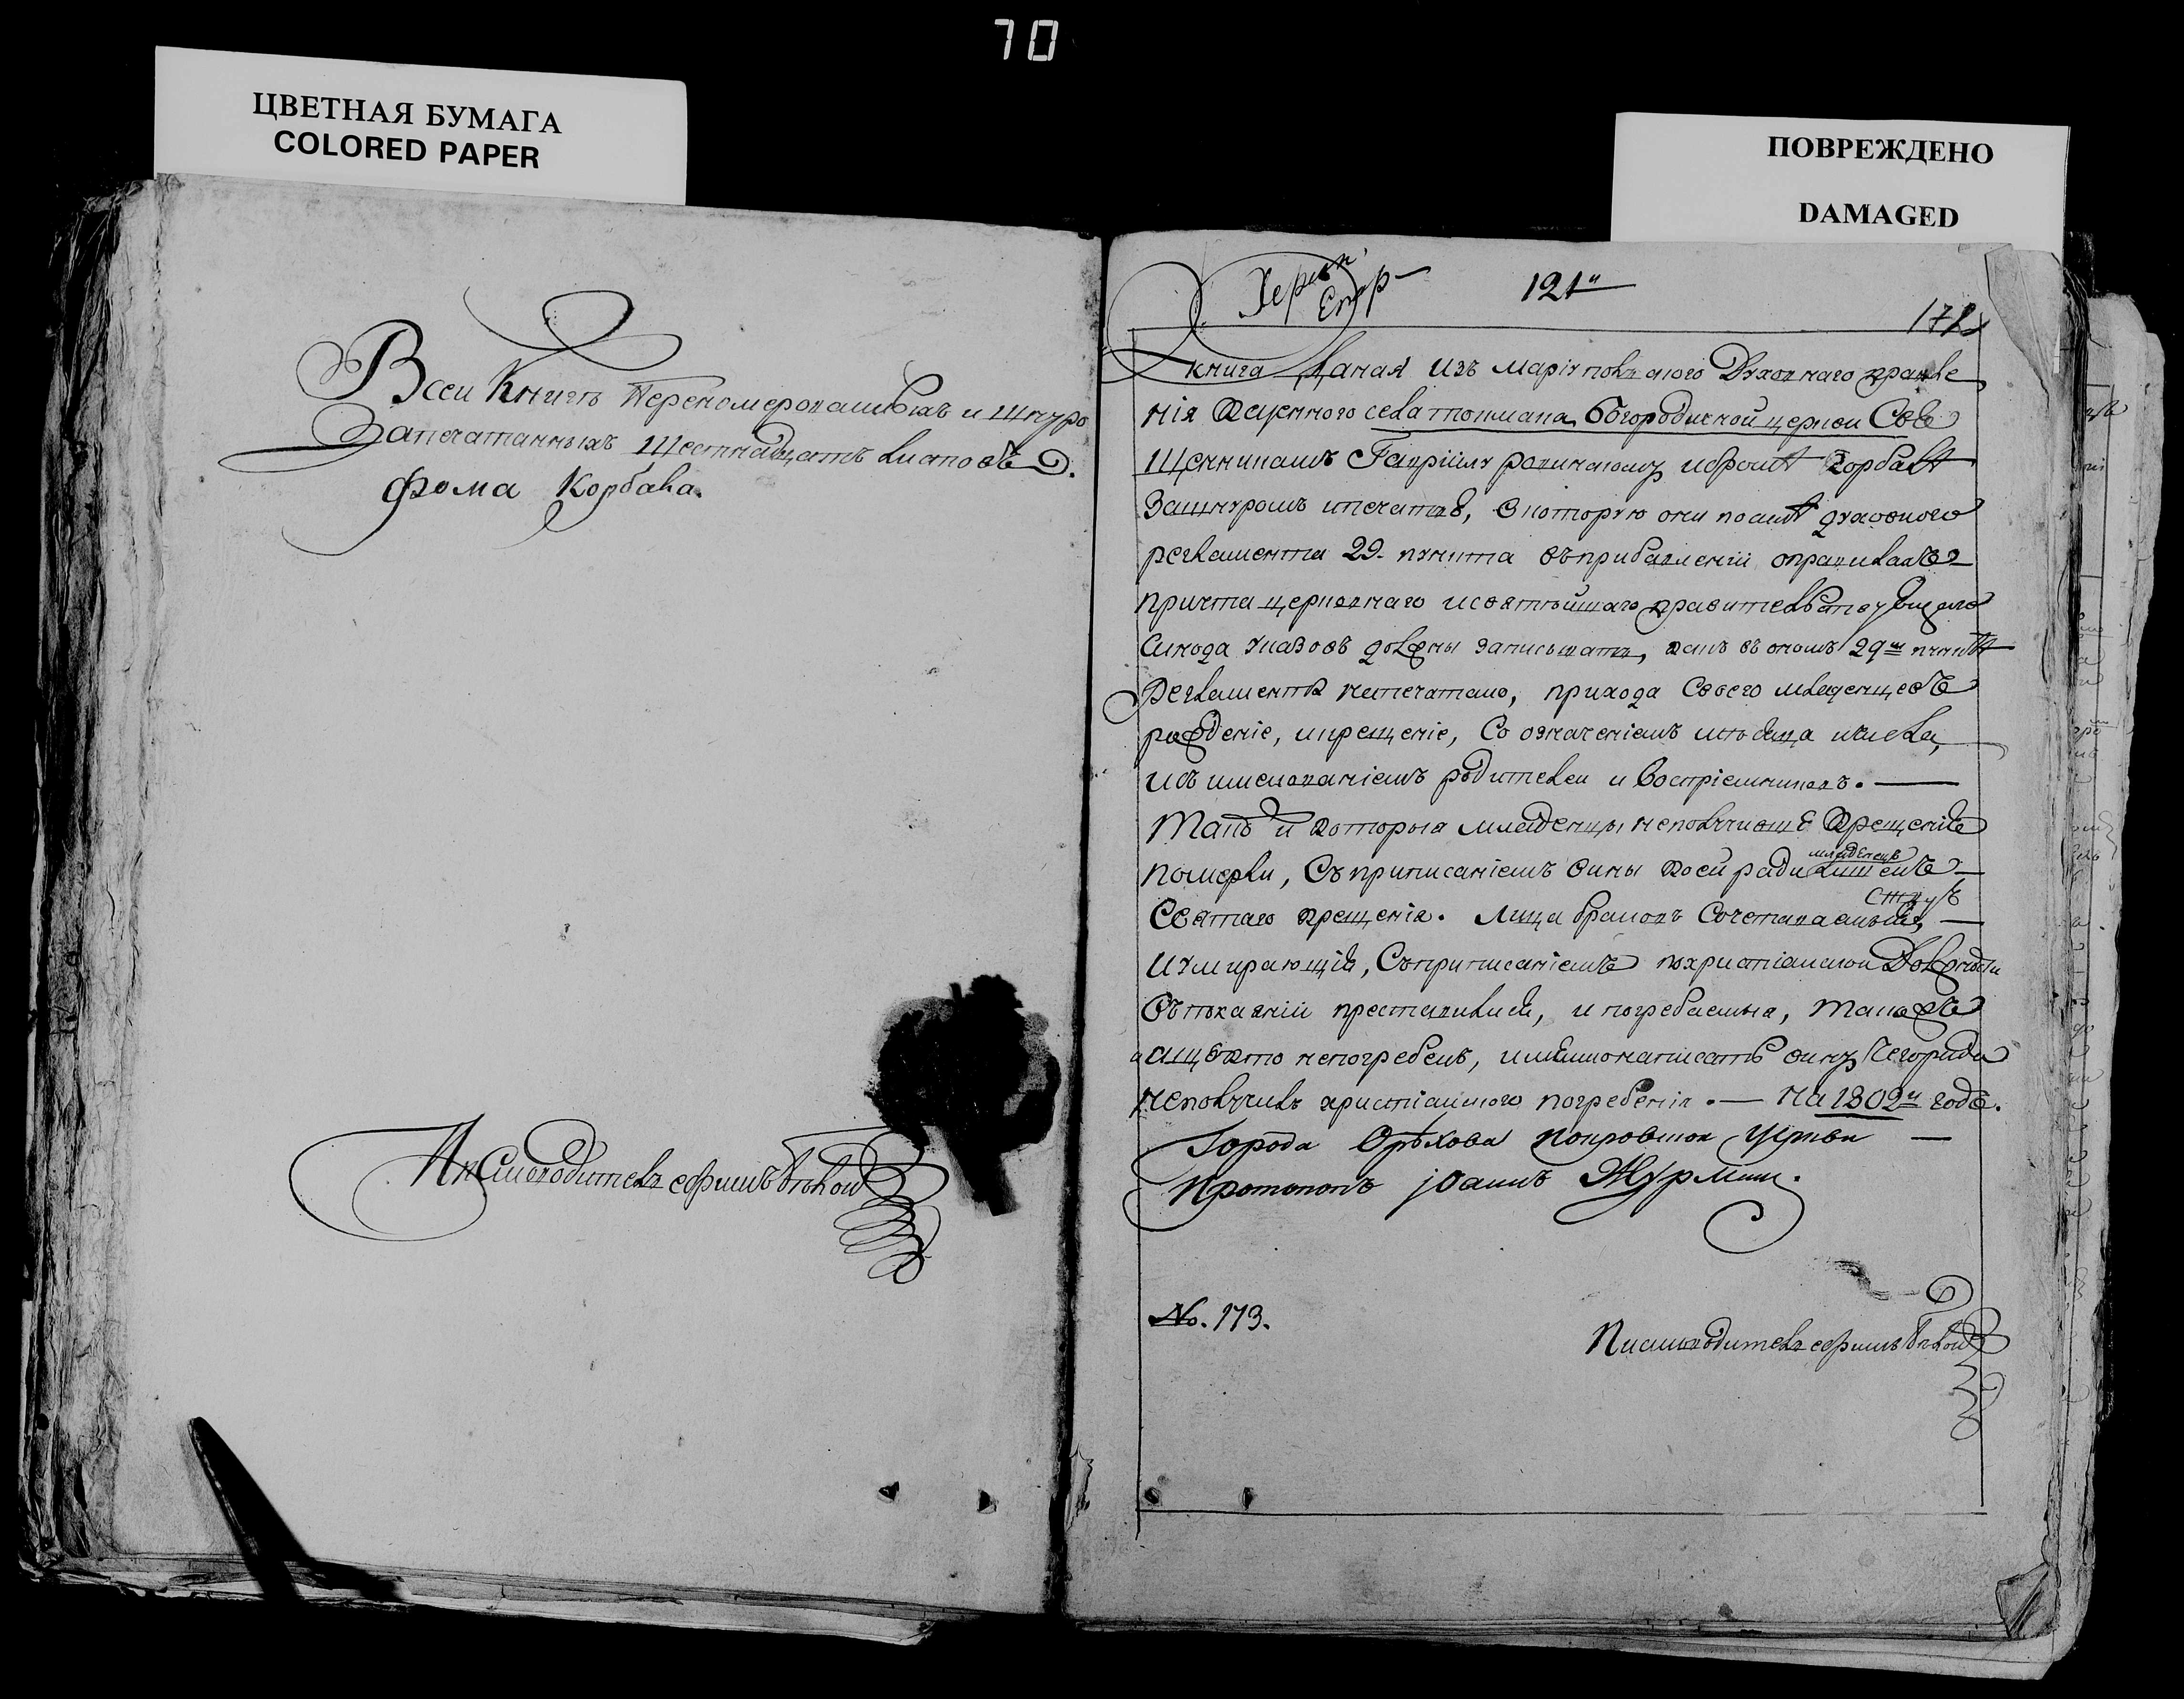 70
ЦВЕТНАЯ БУМАГА
COLORED PAPER
ПОВРЕЖДЕНО
DAMAGED
Всей Книгѣ Перенумерованыхъ и шнуро
Запечатанныхъ шестнадцать листовъ.
Фома Корбала.
Писмоводитель Ефимъ
Херсон.
Епар
121
172
книга даная изъ маріупольского Духовнаго правле
нія казенного села токмака Богородичной церкви Свя
щенникамъ Гавріилу и Фоме Корбале
за шнуромъ и печатью, в которую они по силе духовного
регламента 29. пункта въ прибавленіи о правилахъ
причта церковнаго и святейшаго правительствующаго
Синода указовъ должны записывать, какъ въ ономъ 29м пункте
Регламента напечатано, прихода своего младенцовъ
рожденіе, и крещеніе, со означеніемъ месяца и числа,
и съ именованіемъ родителей и воспріемниковъ.
Такъ и которыя младенцы неполучивше крещеніе
померли, съ приписаніемъ вины коей ради младенецъ лишенъ
Святаго крещенія. Лица бракомъ сочетаваемыя,
и умирающія, съ приписаніемъ по христіанской должности
въ покаяніи преставились, и погребаемыя, такожъ
и аще кто непогребенъ, имянно написать вину чего ради
неполучилъ христіанского погребенія. — На 1802й годъ.
Города Орѣхова покровской церкви
Протопопъ іоаннъ
No. 173.
Писмоводитель Ефимъ